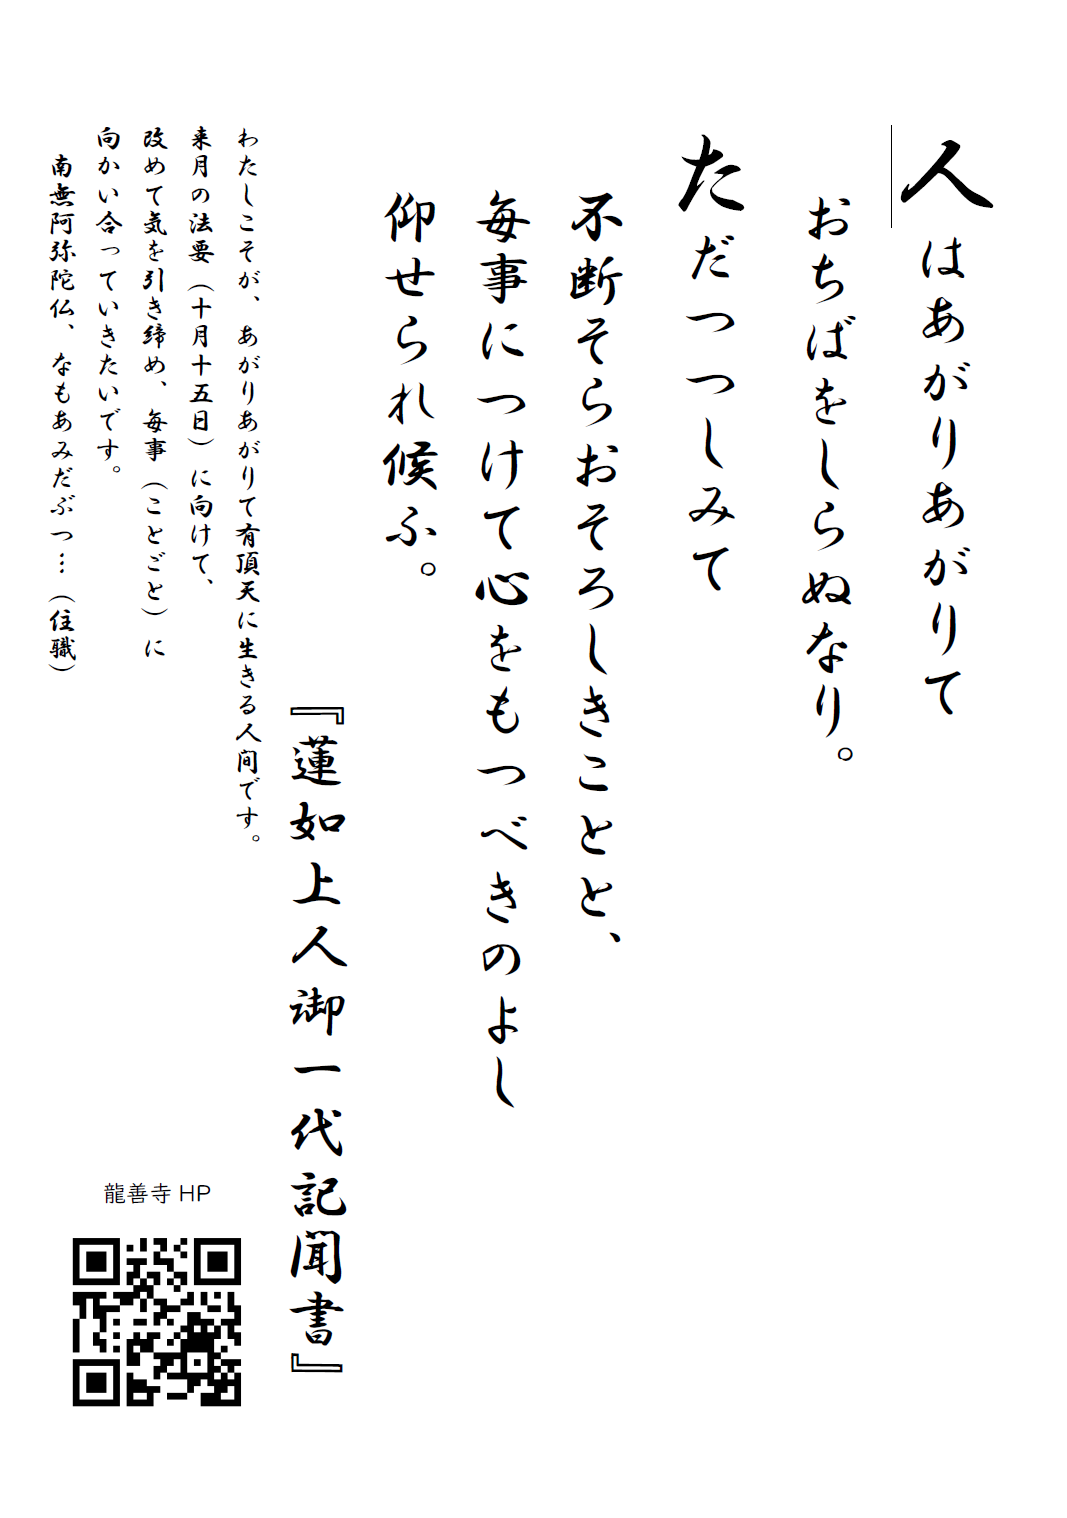 人はあがりあがりて
おちばをしらぬなり。
ただつつしみて
不断そらおそろしきことと、
毎事につけて心をもつべきのよし
仰せられ候ふ。
『蓮如上人御一代記聞書』
わたしこそが、あがりあがりて有頂天に生きる人間です。
来月の法要（十月十五日）に向けて、
改めて気を引き締め、毎事（ことごと）に
向かい合っていきたいです。
南無阿弥陀仏、なもあみだぶつ…（住職）
龍善寺 HP